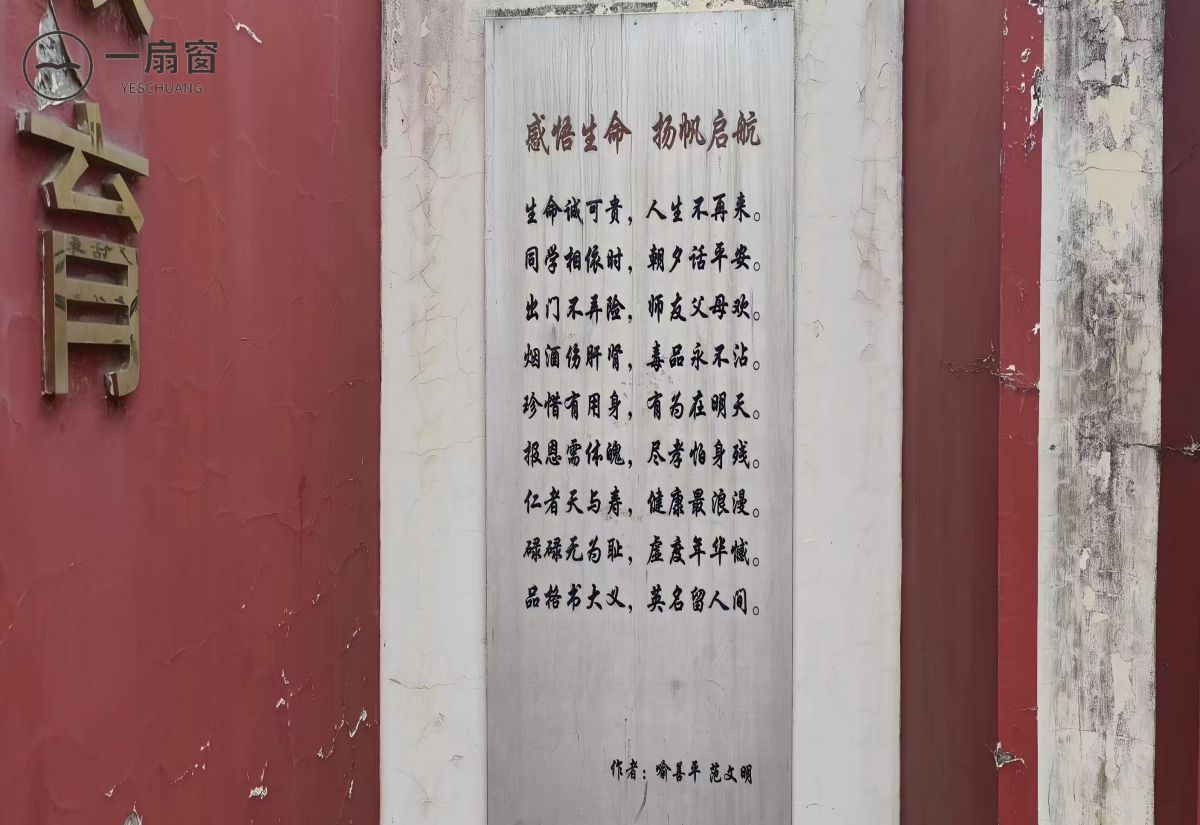 一扇窗
YESCHUANG
育
感悟生命 扬帆启航
生命诚可贵，人生不再来。
同学相依时，朝夕话平安。
出门不弄险，师友父母欢。
烟酒伤肝肾，毒品永不沾。
珍惜有用身，有为在明天。
报恩需体魄，尽孝怕身残。
仁者天与寿，健康最浪漫。
碌碌无为耻，虚度年华憾。
品格书大义，英名留人间。
作者：喻善平 范文明